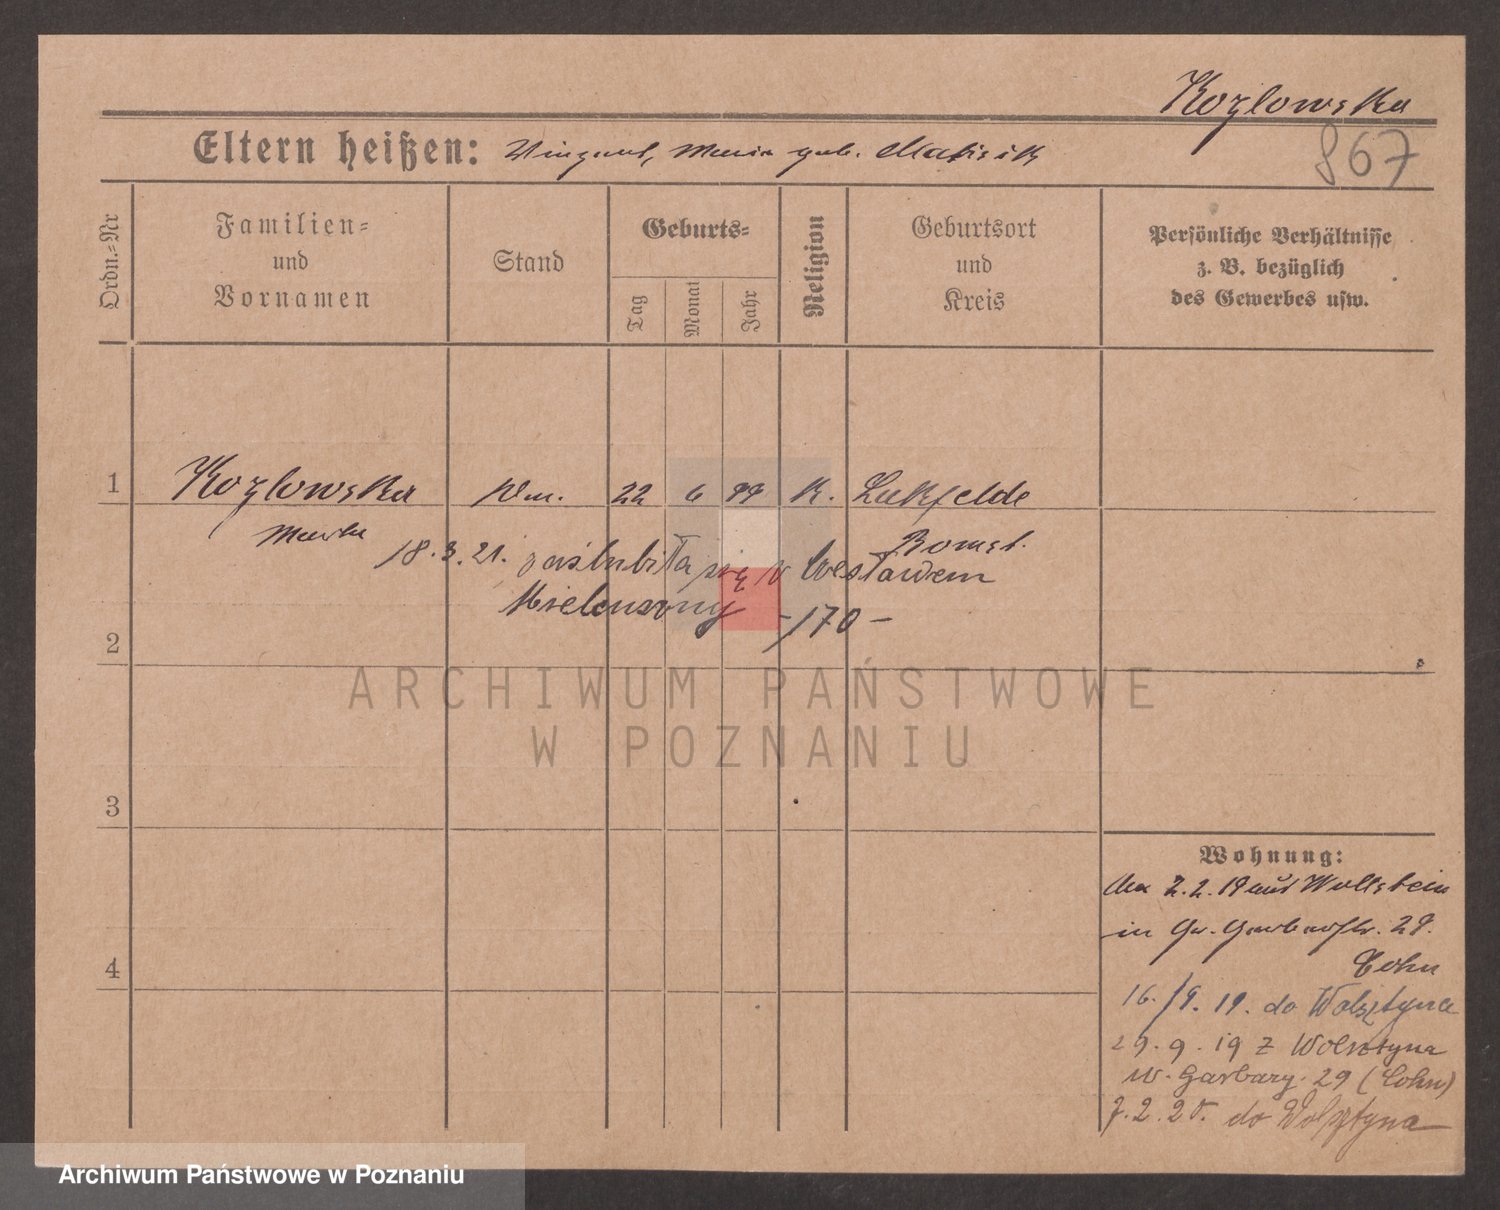 Kozlowska
867
Eltern heißen: Vinzent, Maria geb. Matisik
Ordn.=Nr
Familien=
und
Vornamen
Stand
Geburts=
Tag
Monat
Jahr
Religion
Geburtsort
und
Kreis
Persönliche Verhältnisse
z. B. bezüglich
des Gewerbes usw.
1 Kozlowska 22 6 99 K. Lukfelde
Bomst.
18.3.21. poślubiła się w Wesławem
-170-
2
3
4
Wohnung:
2.2.19 aus Wollstein
in Gr. Gerberstr. 29.
Cohn
16./9. 19. do Wolsztyna
29.9.19 z Wolsztyna
w. Garbary. 29 (Cohn)
7.2.20. do Wolsztyna
ARCHIWUM PAŃSTWOWE
W POZNANIU
Archiwum Państwowe w Poznaniu